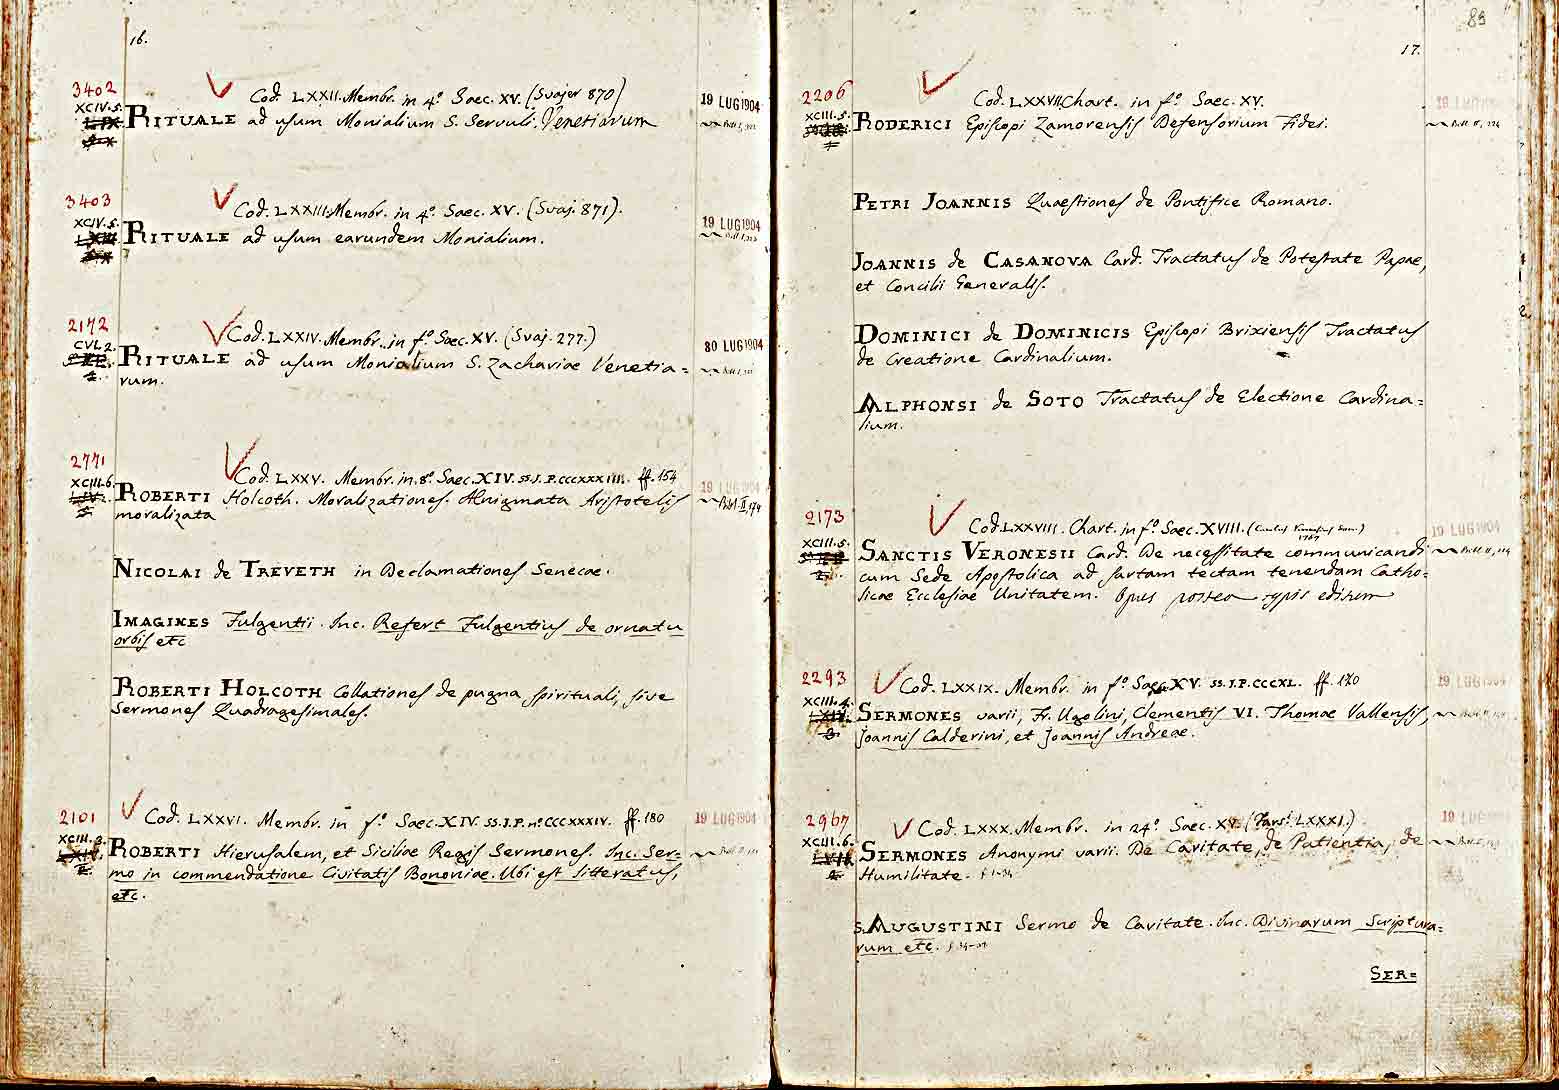 16.
3402
Cod. LXXII. Membr. in 4.º Saec. XV. (Svajer 870)
19 LUG 1904
XCIV. 5.
RITUALE ad usum Monialium S. Servuli. Venetiarum
3403
Cod. LXXIII. Membr. in 4.º Saec. XV. (Svaj. 871).
19 LUG 1904
XCIV. 5.
RITUALE ad usum earundem Monialium.
2172
Cod. LXXIV. Membr. in f.º Saec. XV. (Svaj. 277.)
80 LUG 1904
CVL 2.
RITUALE ad usum Monialium S. Zachariae Venetia=
rum.
2771
Cod. LXXV. Membr. in. 8.º Saec. XIV. SS. I. P. CCCXXXIIII. ff. 154
19 LUG 1904
XCIII. 6.
ROBERTI Holcoth. Moralizationes. Aenigmata Aristotelis
moralizata
NICOLAI de TREVETH in Declamationes Senecae.
IMAGINES Fulgentii. Inc. Refert Fulgentius de ornatu
orbis etc
ROBERTI HOLCOTH Collationes de pugna spirituali, sive
Sermones Quadragesimales.
2101
Cod. LXXVI. Membr. in f.º Saec. XIV. SS. I. P. nº CCCXXXIV. ff. 180
19 LUG 1904
XCIII. 3.
ROBERTI Hierusalem, et Siciliae Regis Sermones. Inc. Ser=
mo in commendatione Civitatis Bononiae. Ubi est litteratus,
etc.
83
17.
2206
Cod. LXXVII. Chart. in f.º Saec. XV.
XCIII. 5.
RODERICI Episcopi Zamorensis Defensorium Fidei.
PETRI JOANNIS Quaestiones de Pontifice Romano.
JOANNIS de CASANOVA Card. Tractatus de Potestate Papae,
et Concilii Generalis.
DOMINICI de DOMINICIS Episcopi Brixiensis Tractatus
de Creatione Cardinalium.
ALPHONSI de SOTO Tractatus de Electione Cardina=
lium.
2173
Cod. LXXVIII. Chart. in f.º Saec. XVIII.
19 LUG 1904
XCIII. 5.
SANCTIS VERONESII Card. De necessitate communicandi
cum Sede Apostolica ad sartam tectam tenendam Catho=
licae Ecclesiae Unitatem. Opus postea typis editum
2293
Cod. LXXIX. Membr. in f.º Saec. XV. SS. I. P. CCCXL. ff. 170
19 LUG 1904
XCIII. 4.
SERMONES varii, Fr. Ugolini, Clementis VI. Thomae Vallensis,
Joannis Calderini, et Joannis Andreae.
2967
Cod. LXXX. Membr. in 24.º Saec. XV. (Fars. LXXXI.)
19 LUG
XCIII. 6.
SERMONES Anonymi varii. De Caritate, de Patientia, de
Humilitate.
S. AUGUSTINI Sermo de Caritate. Inc. Divinarum Scriptura=
rum etc.
SER=